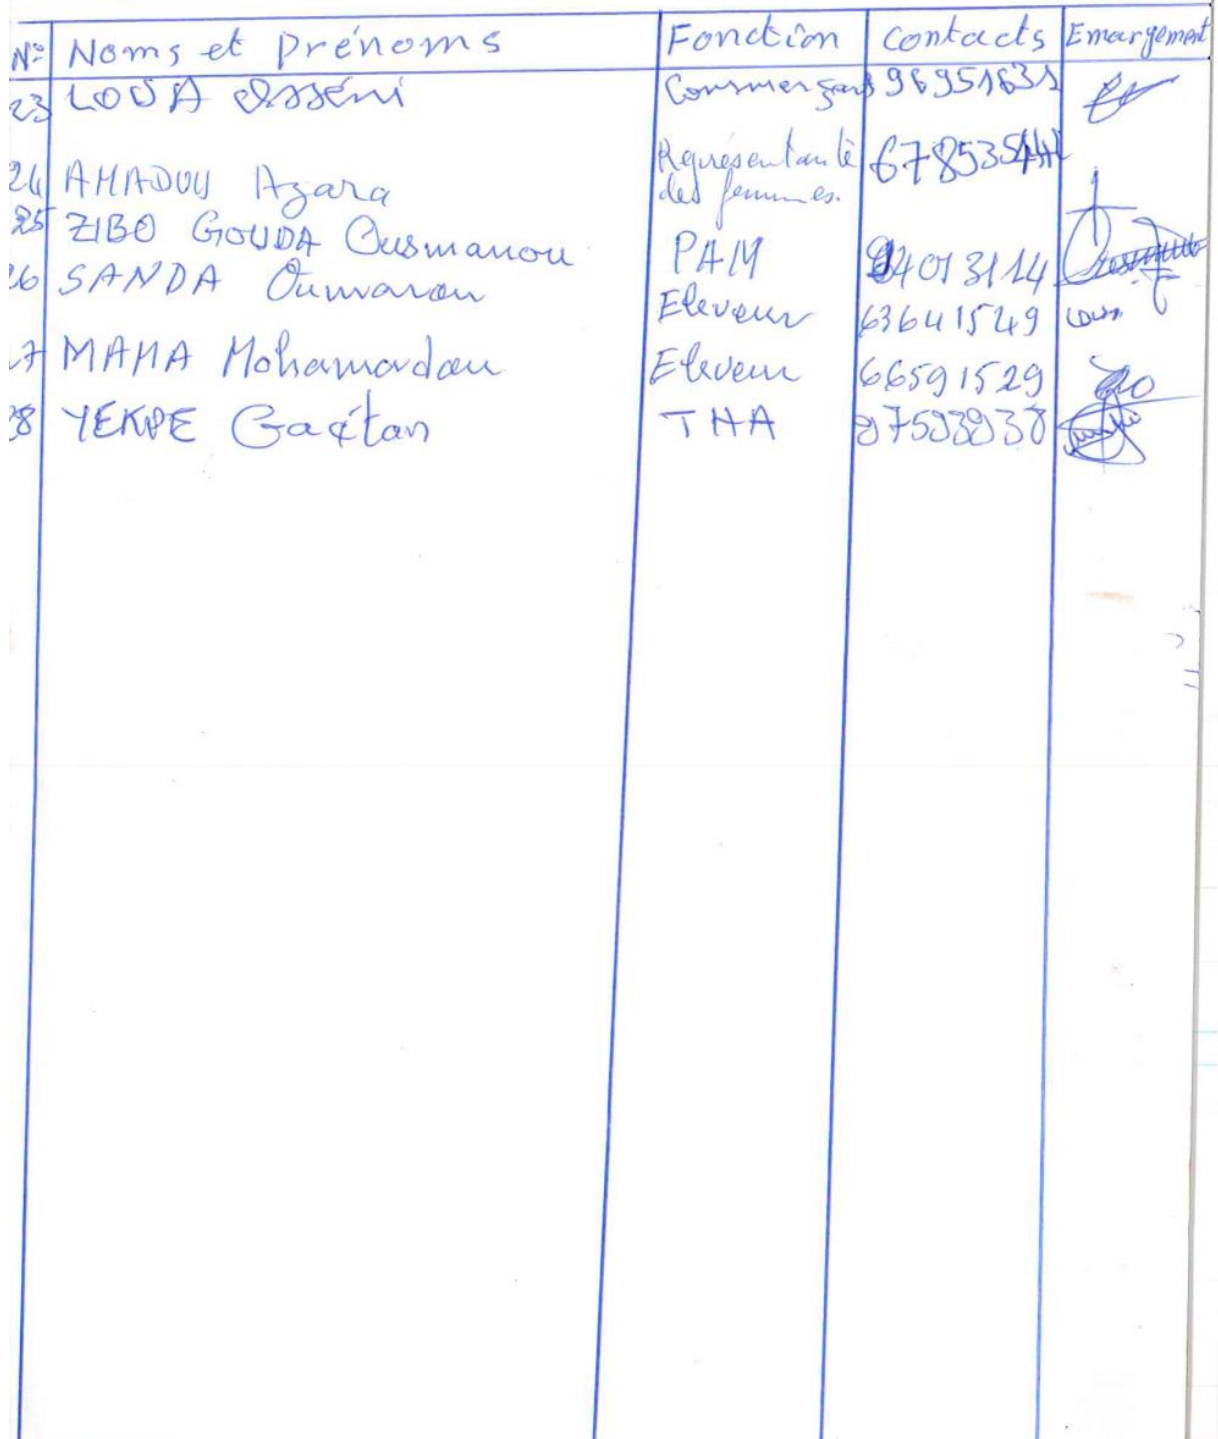 N° Noms et Prénoms Fonction Contacts Emargement
23 Commerçant 96951631
24 AMADOU Azara Représentante des femmes. 678535
25 ZIBO GOUDA Ousmanou PAM 94013114
26 SANDA Oumarou Eleveur 63641529
27 MAMA Mohamadou Eleveur 66591529
28 YEKPE Gaétan THA 97593938